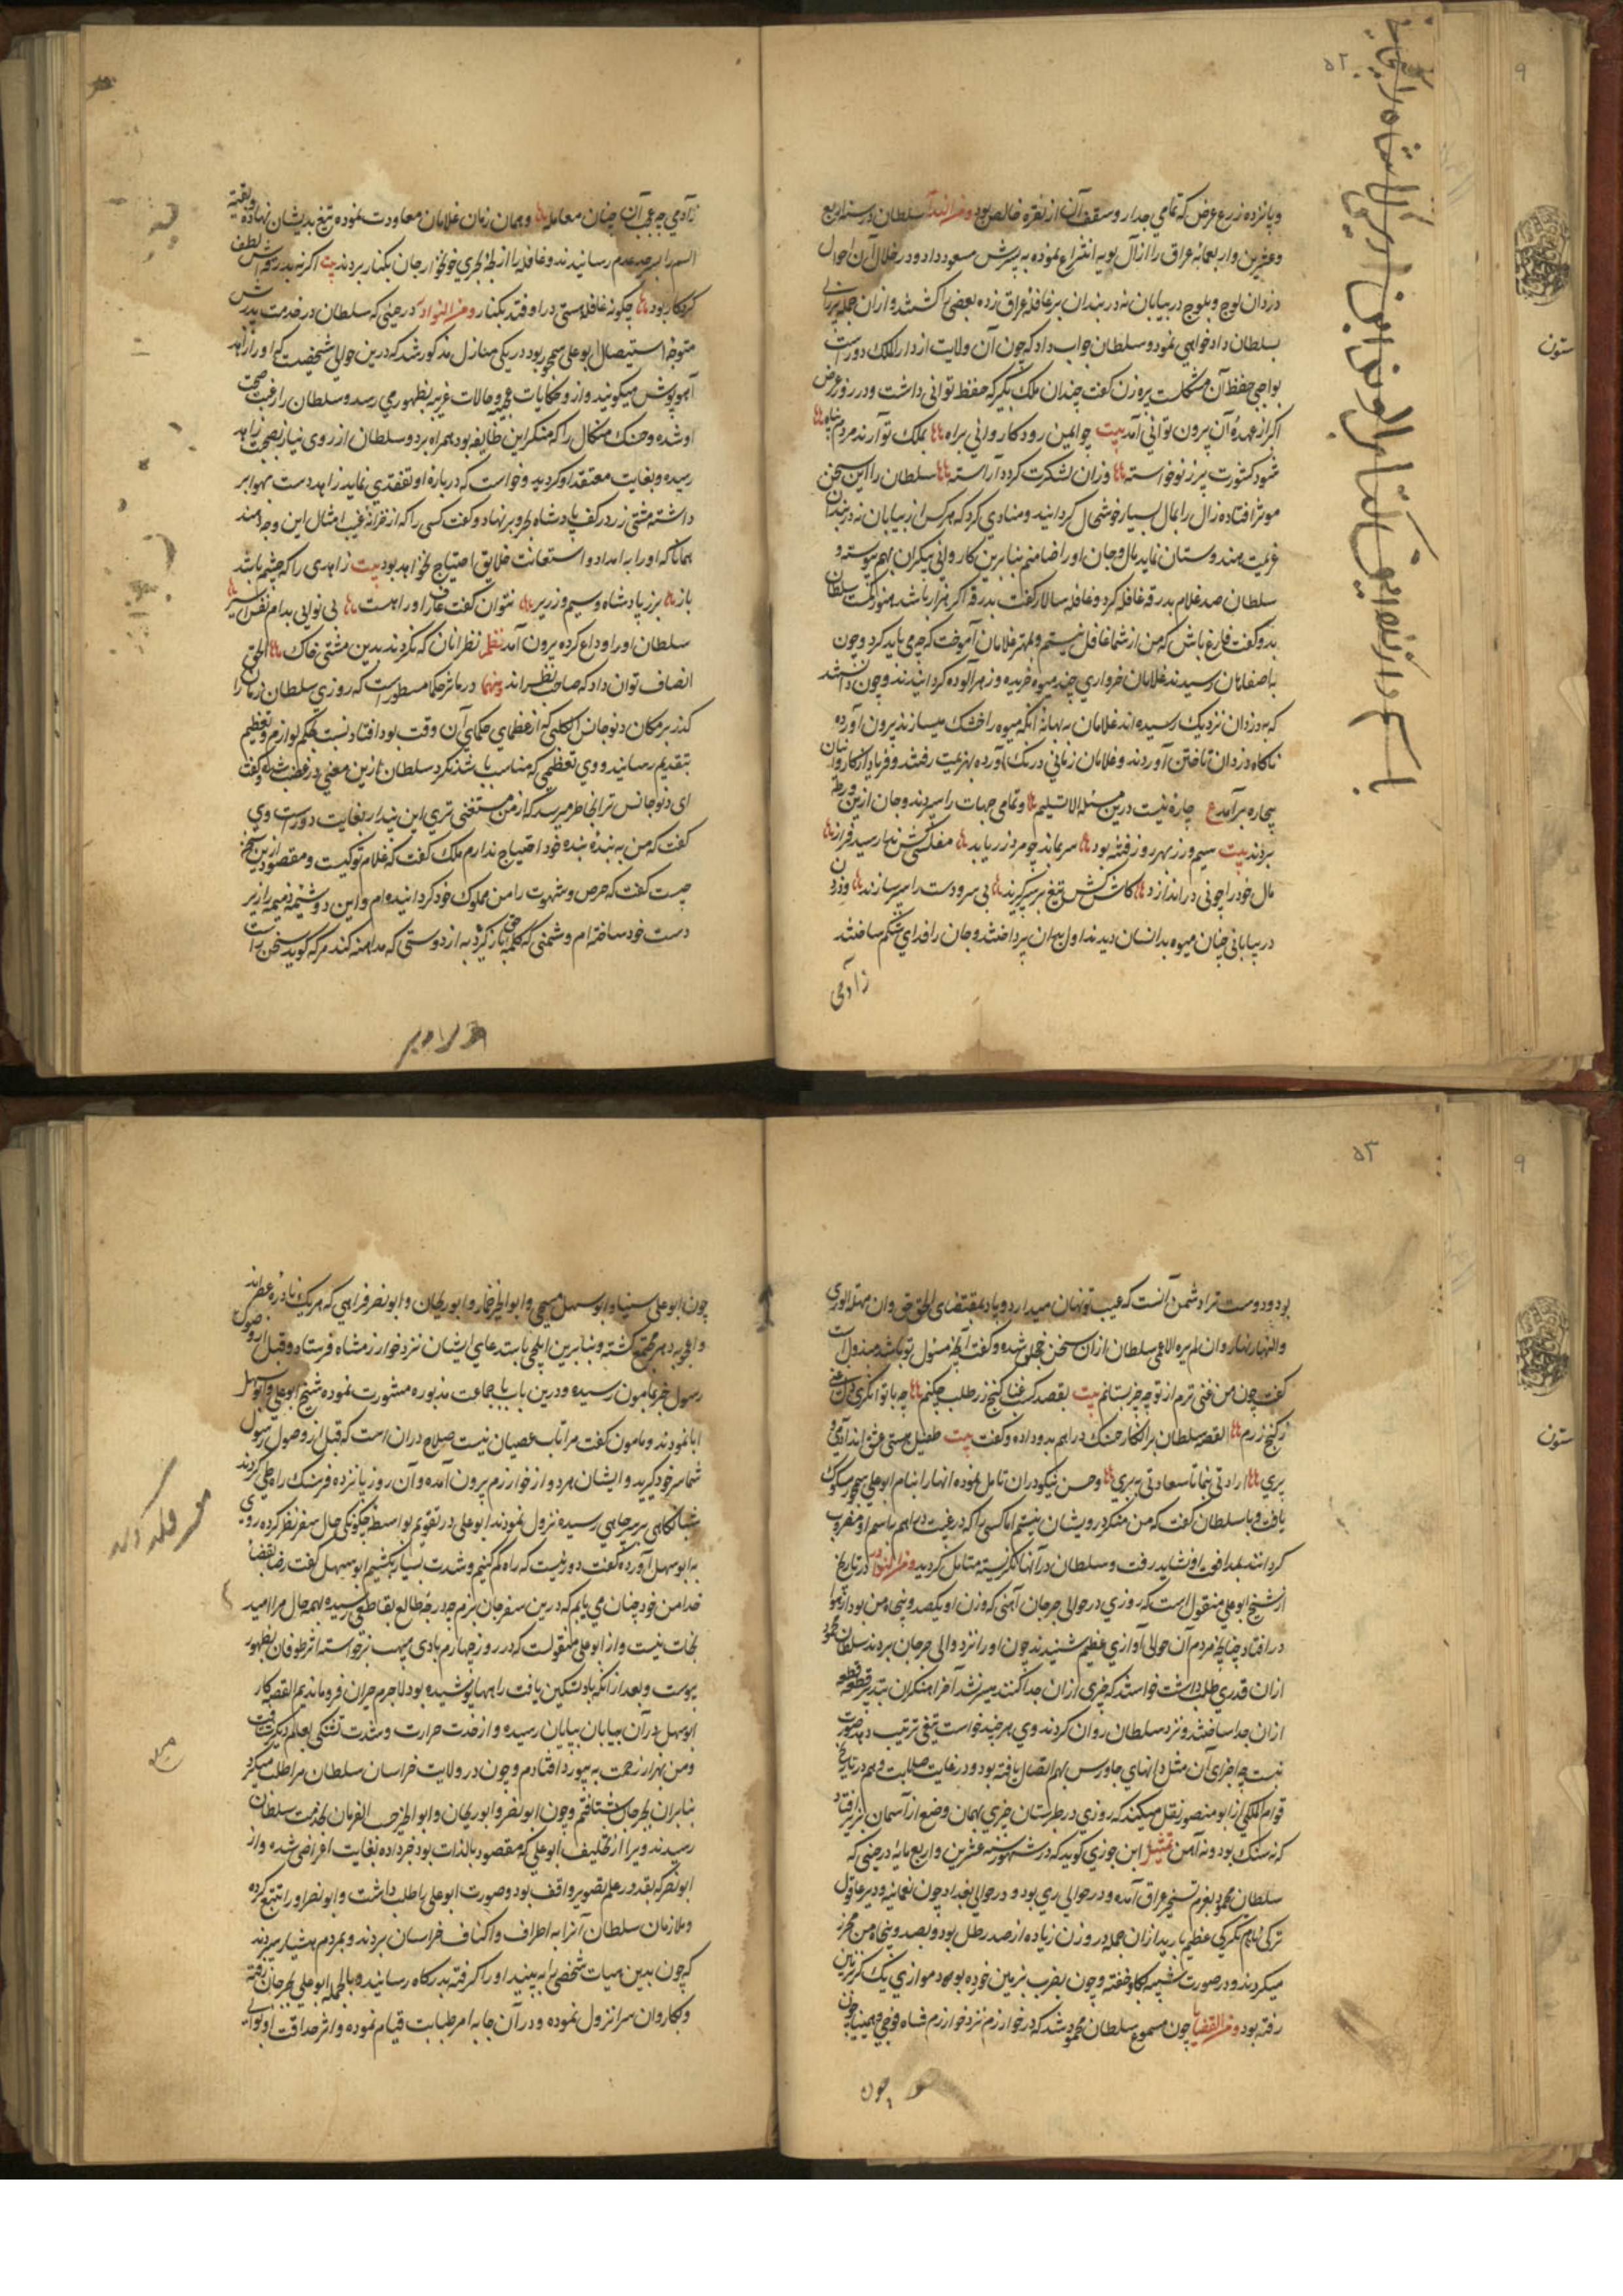 و پانزده زرع عرض که تمامی جدار و سقف آن از نقره خالص بود سلطان در سنه اربع
و عشرین و اربعمائه عراق را از آل بویه انتزاع نموده به پسرش مسعود داد و در خلال آن احوال
دزدان کوچ و بلوچ در بیابان نه دربندان بر قافله عراق زده بعضی را کشتند و از آن جمله پیرزالی
بسلطان دادخواهی نمود و سلطان جواب داد که چون آن ولایت از دارالملک دور است
بواجبی حفظ آن مشکلست پیره زن گفت چندان ملک بگیر که حفظ توانی داشت و در روز عرض
اکر از عهده آن بیرون توانی آمد بیت چو ایمن رود کاروانی براه بملک تو آرند مردم پناه
شود کشورت پر ز نوخواسته وزان لشکرت کردد آراسته سلطان را این سخن
موثر افتاده زال را بمال بسیار خوشحال کردانید و منادی کرد که هر کس از بیابان نه دربندان
عزیمت هندوستان نماید بمال و جان او را ضامنم بنابرین کاروانی بیکران بهم پیوسته و
سلطان صد غلام بدرقه قافله کرد و قافله سالار کفت بدرقه اکر هزار باشد هنوز کمست سلطان
بدو کفت فارغ باش که من از شما غافل نیستم و بمهتر غلامان آموخت که چه می باید کرد و چون
باصفاهان رسیدند غلامان خرواری چند میوه خریده و زهرآلوده کردانیدند و چون دانستند
که بدزدان نزدیک رسیده اند غلامان به بهانه آنکه میوه را خشک میسازند بیرون آورده
ناکاه دزدان تاختن آوردند و غلامان زمانی درنک آورده بهزیمت رفتند و فریاد از کاروانیان
بیچاره برآمد ع چاره نیست درین مسئله الا تسلیم و تمامی جهات را سپردند و جان ازین ورطه
بردند بیت سیم و زر بهر روز رفته بود سر بماند چو مرد زر یابد
مال خود را چونی دراندازد کاش کش تیغ بر سر گیرند بی سر و دست را بسر سازند و دزدان
در بیابانی چنان میوه بدانسان دیدند اول بدان پرداختند و جان را فدای شکم ساختند
زآدمی
زآدمی چه عجب آن چنان معامله و همان زمان غلامان معاودت نموده تیغ بدیشان نهاده و بقیه
السیف را بسرحد عدم رسانیدند و قافله را از بحری خونخوار جان بکنار بردند بیت اکر نه بدرقه اش لطف
کردکار بود چکونه قافله هستی در اوفتد بکنار و من النوادر در حینی که سلطان در خدمت پدرش
متوجه استیصال بوعلی سیمجور بود در یکی منازل مذکور شد که درین حوالی شخصیست که او را زاهد
آهوپوش میکویند و از و حکایات عجیبه و حالات غریبه بظهور می رسد و سلطان را رغبت صحبت
او شده و حسنک میکال را که منکر این طایفه بود همراه برد و سلطان از روی نیاز بصحبت زاهد
رسیده و بغایت معتقد او کردید و خواست که درباره او تفقدی نماید زاهد دست بهوا بر
داشته مشتی زر در کف پادشاه بحر و بر نهاد و کفت کسی را که از خزانه غیب امثال این وجه دهند
همانا که او را به امداد و استعانت خلایق احتیاج نخواهد بود بیت زاهدی را که چشم باشد
باز بزر پادشاه و سیم وزیر نتوان کفت عارف او را هست بی نوایی بدام نفس اسیر
سلطان او را وداع کرده بیرون آمد نظم نظرانان که نکردند بدین مشتی خاک الحق
انصاف توان داد که صاحب نظراند و منها در مآثر حکما مسطور است که روزی سلطان زمان را
کذر بر مکان دیوجانس کلبی که از عظمای حکمای آن وقت بود افتاد نسبت بحکم لوازم تعظیم
بتقدیم رسانید و وی تعظیمی که مناسب باشد نکرد سلطان ازین معنی در غضب شده کفت
ای دیوجانس ترا بخاطر میرسد که از من مستغنی تری این پندار بغایت دور است وی
کفت که من به بنده بنده خود احتیاج ندارم ملک کفت که غلام تو کیست و مقصود ازین سخن
چیست کفت که حرص و شهوت را من مملوک خود کردانیده ام و این دو شیمه ذمیمه را زیر
دست خود ساخته ام و دشمنی که کلمه حق باز کوید به از دوستی که مداهنه کند هر که کوید سخن راست
بود دوست ترا دشمن دانست که عیب تو نهان میدارد و باد بمقتضای الحق حق وان جهله الوری
والنهار نهار وان لم یره الاعمی سلطان ازان سخن خجل شده و کفت آنچه مسئول تو باشد مبذول است
کفت چون من غنی ترم از تو چه چیز بستانم بیت بقصد کسب غنا کنج زر طلب چکنم چه با توانکری دل غنی
ز کنج زرم القصه سلطان برانکار حسنک دراهم بدو داده و کفت بیت طفیل هستی عشق اند آدمی و
پری ارادتی بنما تا سعادتی ببری و حسن نیکو دران تامل نموده انها را بنام ابوعلی سیمجور مسکوک
یافت و با سلطان کفت که من منکر درویشان نیستم اما کسی را که در غیب دراهم باسم او مضروب
کردانند بمدافعت او نشاید رفت و سلطان در آنها نکریسته متامل کردید و من النوادر در تاریخ
از شیخ ابوعلی منقول است که روزی در حوالی جرجان آهنی که وزن او یکصد و پنجاه من بود از هوا
در افتاد چنانچه مردم آن حوالی آوازی عظیم شنیدند چون او را نزد والی جرجان بردند سلطان محمود
ازان قدری طلب داشت خواستند که چیزی ازان جدا کنند میسر نشد آخر آهنکران بتدبیر قطعه
ازان جدا ساختند و نزد سلطان روان کردند وی هر چند خواست تیغی ترتیب دهد صورت
نبست چه اجزای آن مثل دانهای جاورس بهم اتصال یافته بود و در غایت صلابت و هم در تاریخ
قوام الملکی از ابومنصور نقل میکند که روزی در طبرستان چیزی بهمان وضع از آسمان بزیر افتاد
که نه سنک بود و نه آهن تمثیل ابن جوزی کوید که در شهور سنه عشرین و اربع مایه در حینی که
سلطان محمود بعزم تسخیر عراق آمده و در حوالی ری بود و در حوالی بغداد چون نعمانیه و دیر عاقول
تکرکی عظیم بارید ازان جمله در وزن زیاده از صد رطل بود و بصد و پنجاه من محرز
میکردند و در صورت شبیه بکاو خفته و چون بضرب بزمین خورده بود موازی یک کز بزمین
رفته بود و من القضایا چون مسموع سلطان محمود شد که در خوارزم نزد خوارزم شاه فوجی
چون
چون ابوعلی سینا و ابوسهل مسیحی و ابوالخیر خمار و ابوریحان و ابونصر فراهی که هر یک نادره عصراند
و اعجوبه دهر مجتمع کشته و بنابرین ایلچی باستدعای ایشان نزد خوارزمشاه فرستاد و قبل از وصول
رسول خبر بمامون رسیده و درین باب با جماعت مذبوره مشورت نموده شیخ ابوعلی و ابوسهل
ابا نمودند و مامون کفت مرا تاب عصیان نیست صلاح دران است که قبل از وصول رسول
شما سر خود کیرید و ایشان هر دو از خوارزم بیرون آمده و آن روز پانزده فرسنک راه طی کردند
شبانکاهی بر سر چاهی رسیده نزول نمودند ابوعلی در تقویم بواسطه چکونکی حال سفر نظر کرده روی
به ابوسهل آورده کفت دور نیست که راه کم کنیم و شدت بسیار بکشیم ابوسهل کفت رضا بقضا
خدا من خود چنان می یابم که درین سفر جان نبرم چه درجه طالع بقاطعی رسیده بهمه حال مرا امید
نجات نیست و از ابوعلی منقولست که در روز چهارم بادی مهیب برخواسته اثر طوفان بظهور
پیوست و بعد از آنکه باد تسکین یافت راهها پوشیده بود لاجرم حیران فرو ماندیم القصه کار
ابوسهل در آن بیابان بپایان رسیده و از حدت حرارت و شدت تشنکی بعالم دیکر شتافت
و من بهزار زحمت به ابیورد افتادم و چون در ولایت خراسان سلطان مرا طلب میکرد
بنابران بجرجان شتافتم و چون ابونصر و ابوریحان و ابوالخیر حسب الفرمان بخدمت سلطان
رسیدند و یرا از تخلیف ابوعلی که مقصود بالذات بود خبر داده بغایت اعراضی شده و از
ابونصر که بقدر در علم تصویر واقف بود و صورت ابوعلی را طلب داشت و ابونصر او را تتبع کرده
و ملازمان سلطان آنرا به اطراف و اکناف خراسان بردند و بمردم هشیار سپردند
که چون بدین هیات شخصی را به بینند او را کرفته بدرکاه رسانید و بالجمله ابوعلی بجرجان رفته
و بکاروان سرا نزول نموده و در آن جا به امر طبابت قیام نموده و اثر حذاقت او بوالی
ستون
ستون
۵۲
۵۳
۹
۹